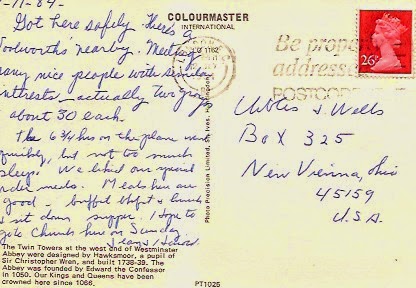 -11-84-
Got here safely. There's a
Woolworth's nearby. Meeting
many nice people with similar
interests - actually two groups
about 30 each.
The 6 3/4 hrs on the plane went
quickly, but not too much
sleep. We liked our special
order meals. Meals here are
good - buffet bkfst & lunch
& sit down supper. Hope to
go to Church here on Sunday
The Twin Towers at the west end of Westminster
Abbey were designed by Hawksmoor, a pupil of
Sir Christopher Wren, and built 1738-39. The
Abbey was founded by Edward the Confessor
in 1050. Our Kings and Queens have been
crowned here since 1066.
COLOURMASTER
INTERNATIONAL
Photo Precision Limited, St. Ives,
PT1025
1162
Be proper
addresse
POSTCODE
26
Wells
Box 325
New Vienna, Ohio
45159
U.S.A.